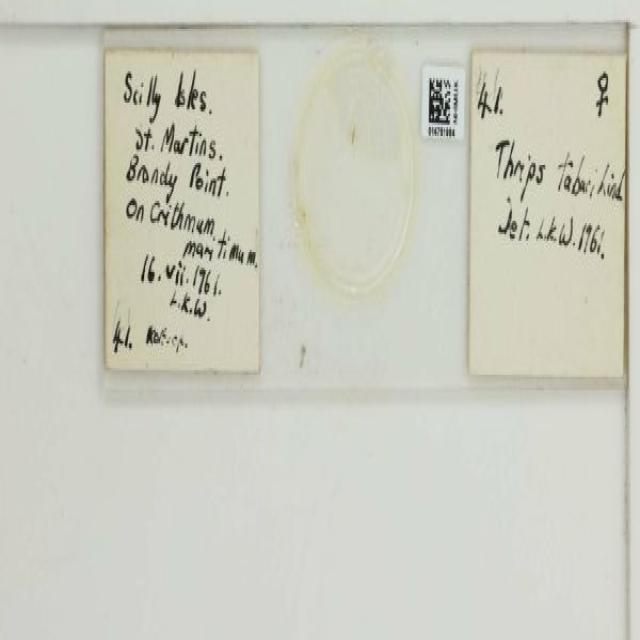 Scilly Isles.
St. Martins.
Brandy Point.
On Crithmum
maritimum.
16.vii.1961.
L.K.W.
41.
41. ♀
Thrips tabaci Lind
Det. L.K.W. 1961.